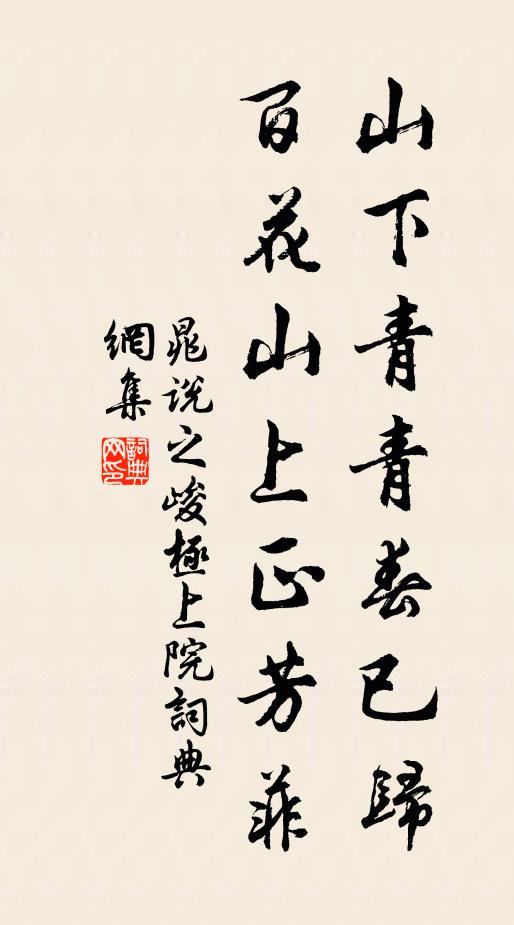 山下青青春已歸
百花山上正芳菲
晁說之峻極上院詞典
網集
詞典
网印